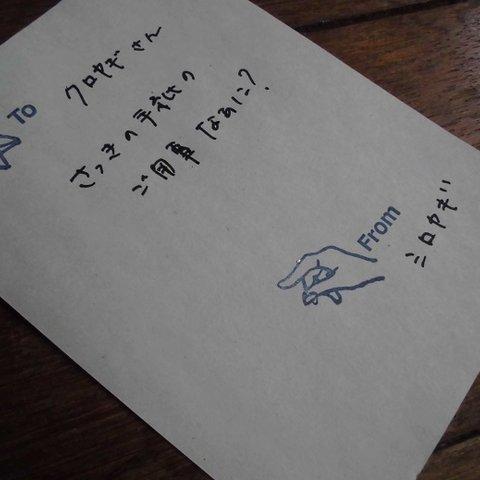 To クロヤギさん
さっきの手紙の
ご用事なあに?
From シロヤギ